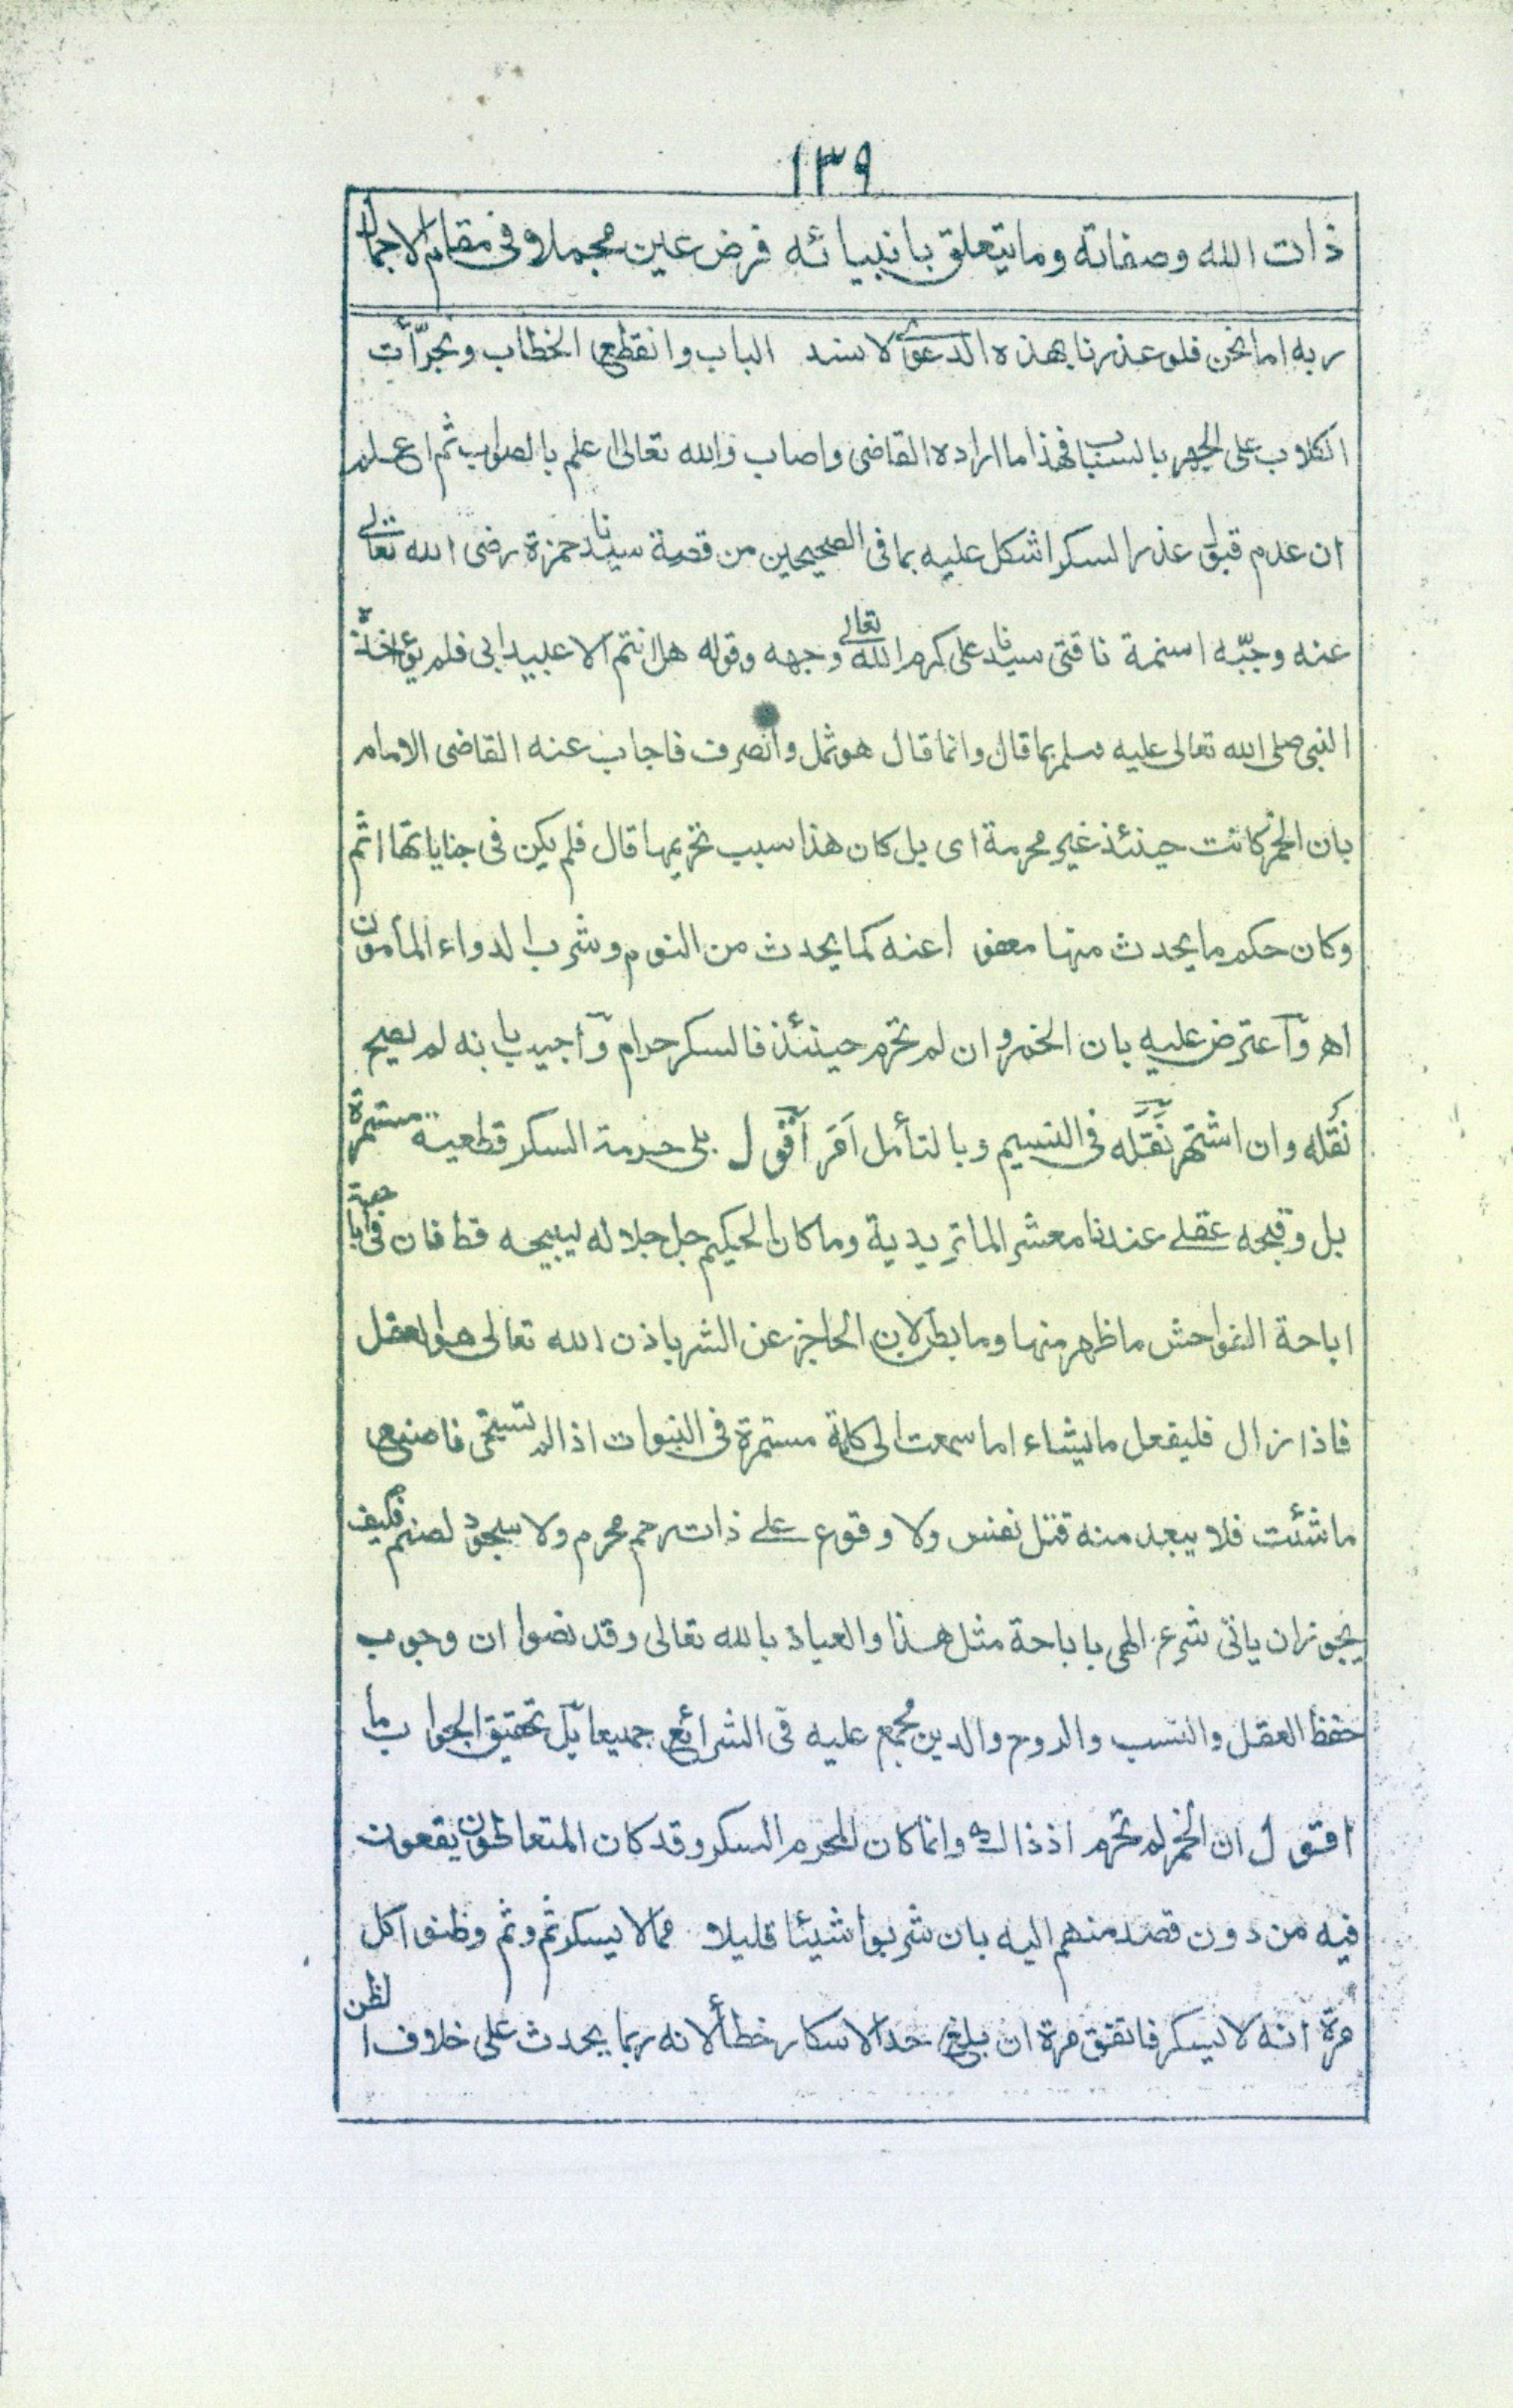 ١٣٩
ذات الله وصفاته وما يتعلق بانبيائه فرض عين مجملا وفى مقام الاجمال
ربه اما نحن فلو عذرنا بهذه الدعوى لا نسد الباب وانقطع الخطاب وتجرّأت
الكلاب على الجهر بالسباب فهذا ما اراده القاضى واصاب والله تعالى اعلم بالصواب ثم اعلم
ان عدم قبول عذر السكر اشكل عليه بما فى الصحيحين من قصة سيدنا حمزة رضى الله تعالى
عنه وجبّه اسنمة ناقتى سيدنا على كرم الله تعالى وجهه وقوله هل انتم الا عبيد ابى فلم يؤاخذه
النبى صلى الله تعالى عليه وسلم بما قال وانما قال هو ثمل وانصرف فاجاب عنه القاضى الامام
بان الخمر كانت حينئذ غير محرمة اى بل كان هذا سبب تحريمها قال فلم يكن فى جناياتها اثم
وكان حكم ما يحدث منها معفوا عنه كما يحدث من النوم وشرب الدواء المأمون
اھ وآعترض عليه بان الخمر وان لم تحرم حينئذ فالسكر حرام وآجيب بانه لم يصح
نقله وان اشتهر نقله فى النسيم وبالتأمل اقول بلى حرمة السكر قطعية مستمرة
بل وقبحه عقلى عندنا معشر الماتريدية وما كان الحكيم جل جلاله ليبيحه قط فان فى اباحته
اباحة الفواحش ما ظهر منها وما بطن لان الحاجز عن الشر باذن الله تعالى هو العقل
فاذا زال فليفعل ما يشاء اما سمعت الى كلمة مستمرة فى النبوات اذا لم تستحى فاصنع
ما شئت فلا يبعد منه قتل نفس ولا وقوع على ذات رحم محرم ولا سجود لصنم فكيف
يجوز ان ياتى شرع الهى باباحة مثل هذا والعياذ بالله تعالى وقد نصوا ان وجوب
حفظ العقل والنسب والروح والدين مجمع عليه فى الشرائع جميعا بل تحقيق الجواب ما
اقول ان الخمر لم تحرم اذ ذاك وانما كان المحرم السكر وقد كان المتعاطون يقعون
فيه من دون قصد منهم اليه بان شربوا شيئا قليلا مما لا يسكر ثم وثم وظنوا كل
مرة انه لا يسكر فاتفق مرة ان بلغ حد الاسكار خطأ لانه ربما يحدث على خلاف الظن